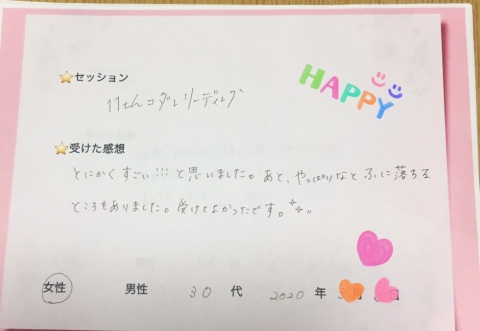 HAPPY
⭐セッション
リーディング
⭐受けた感想
とにかくすごい!!!と思いました。あと、やっぱりなとふに落ちる
ところもありました。受けてよかったです。
女性 男性 30 代 2020 年 月 日